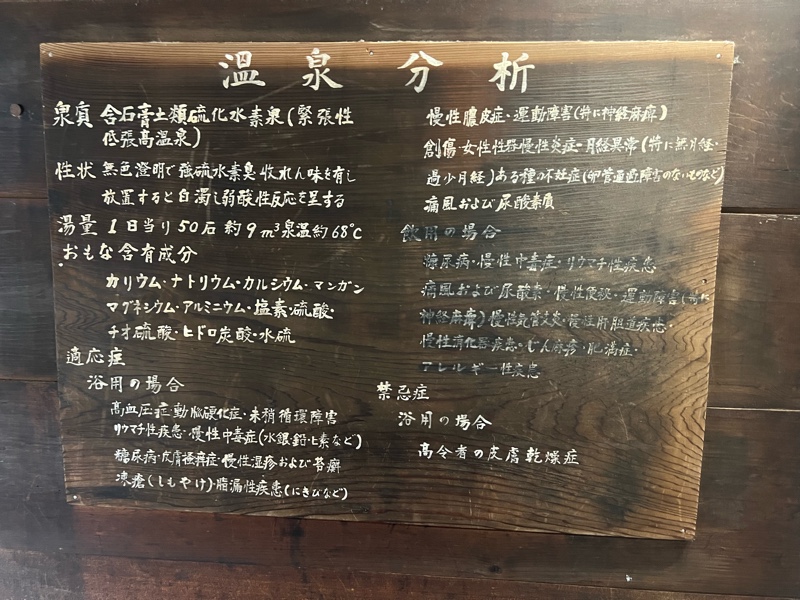 温泉分析
泉質 含石膏土類硫化水素泉(緊張性
低張高温泉)
性状 無色澄明で強硫水素臭収れん味を有し
放置すると白濁し弱酸性反応を呈する
湯量 1日当り50石約9m³泉温約68℃
おもな含有成分
カリウム・ナトリウム・カルシウム・マンガン
マグネシウム・アルミニウム・塩素・硫酸・
チオ硫酸・ヒドロ炭酸・水硫
適応症
浴用の場合
高血圧症・動脈硬化症・末梢循環障害
リウマチ性疾患・慢性中毒症(水銀・鉛・ヒ素など)
糖尿病・皮膚掻痒症・慢性湿疹および苔癬
凍瘡(しもやけ)・脂漏性疾患(にきびなど)
慢性膿皮症・運動障害(特に神経麻痺)
創傷・女性性器慢性炎症・月経異常(特に無月経・
過少月経)ある種の不妊症(卵管通過障害のないものなど)
痛風および尿酸素質
飲用の場合
糖尿病・慢性中毒症・リウマチ性疾患
痛風および尿酸素・慢性便秘・運動障害(特に
神経麻痺)慢性気管支炎・慢性肝胆道疾患・
慢性消化器疾患・じん麻疹・肥満症・
アレルギー性疾患
禁忌症
浴用の場合
高令者の皮膚乾燥症